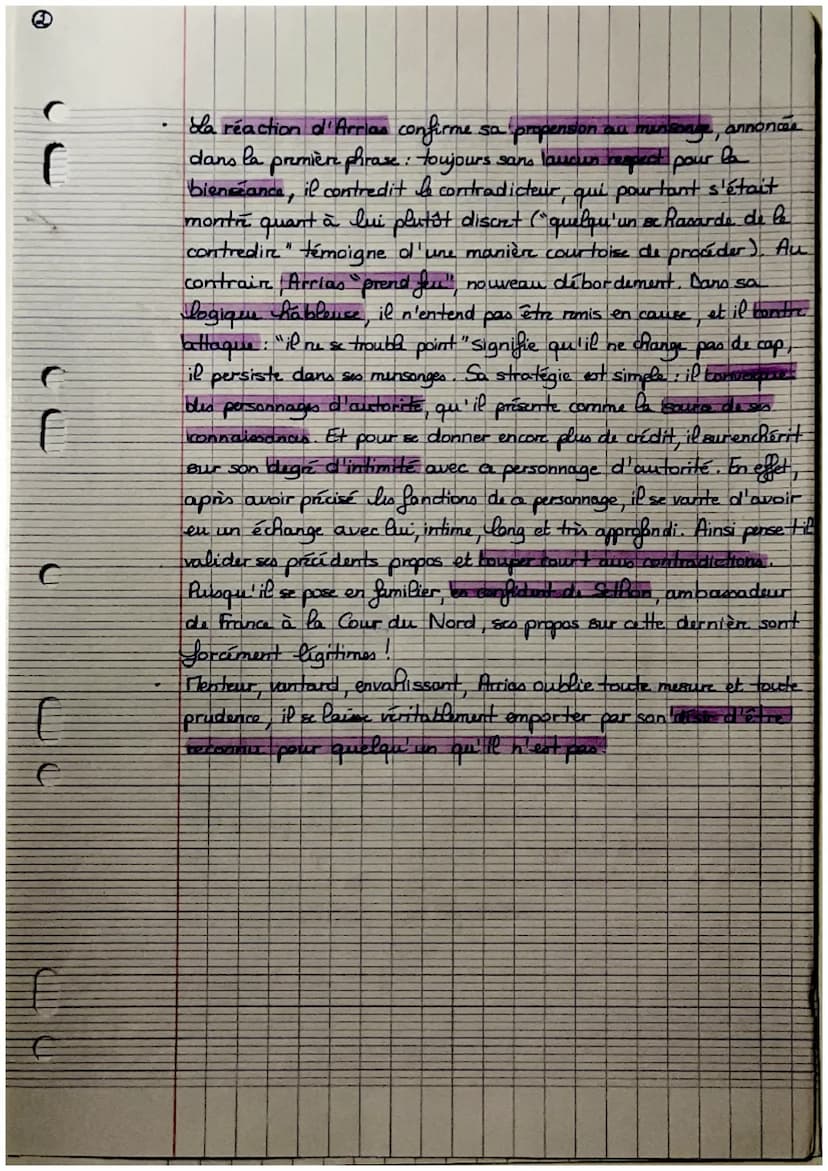 2
• La réaction d'Arrias confirme sa propension au mensonge, annoncée
dans la première phrase : toujours sans aucun respect pour la
bienséance, il contredit le contradicteur, qui pourtant s'était
montré quant à lui plutôt discret ("quelqu'un se hasarde de le
contredire" témoigne d'une manière courtoise de procéder). Au
contraire, Arrias "prend feu", nouveau débordement. Dans sa
logique hâbleuse, il n'entend pas être remis en cause, et il contre
attaque : "il ne se troubla point" signifie qu'il ne change pas de cap,
il persiste dans ses mensonges. Sa stratégie est simple : il convoque
des personnages d'autorité, qu'il présente comme la source de ses
connaissances. Et pour se donner encore plus de crédit, il surenchérit
sur son degré d'intimité avec ce personnage d'autorité. En effet,
après avoir précisé les fonctions de ce personnage, il se vante d'avoir
eu un échange avec lui, intime, long et très approfondi. Ainsi pense-t-il
valider ses précédents propos et couper court aux contradictions.
Puisqu'il se pose en familier, en confident de Sethon, ambassadeur
de France à la Cour du Nord, ses propos sur cette dernière sont
forcément légitimes !
• Menteur, vantard, envahissant, Arrias oublie toute mesure et toute
prudence, il se laisse véritablement emporter par son désir d'être
reconnu pour quelqu'un qu'il n'est pas.